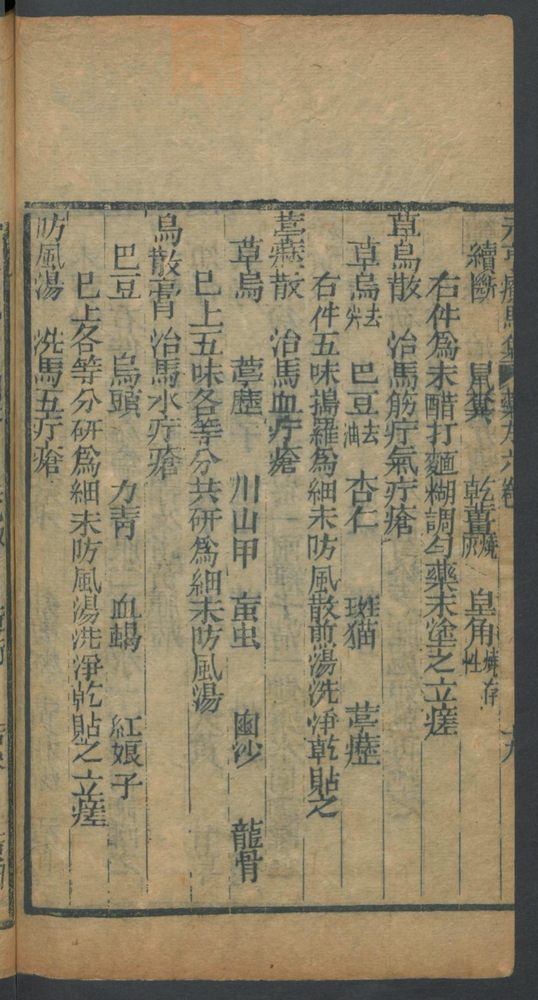 元亨療馬集 藥方六卷 十九
續斷 鼠糞 乾薑燒灰 皂角燒存性
右件爲末醋打麵糊調勻藥末塗之立瘥
草烏散 治馬筋疔氣疔瘡
草烏去尖 巴豆去油 杏仁 斑猫 葶藶
右件五味搗羅爲細末防風散煎湯洗淨乾貼之
葶藶散 治馬血疔瘡
草烏 葶藶 川山甲 䖟虫 鹵沙 龍骨
巳上五味各等分共研爲細末防風湯
烏散膏 治馬水疔瘡
巴豆 烏頭 力青 血蝎 紅娘子
巳上各等分研爲細末防風湯洗淨乾貼之立瘥
防風湯 洗馬五疔瘡